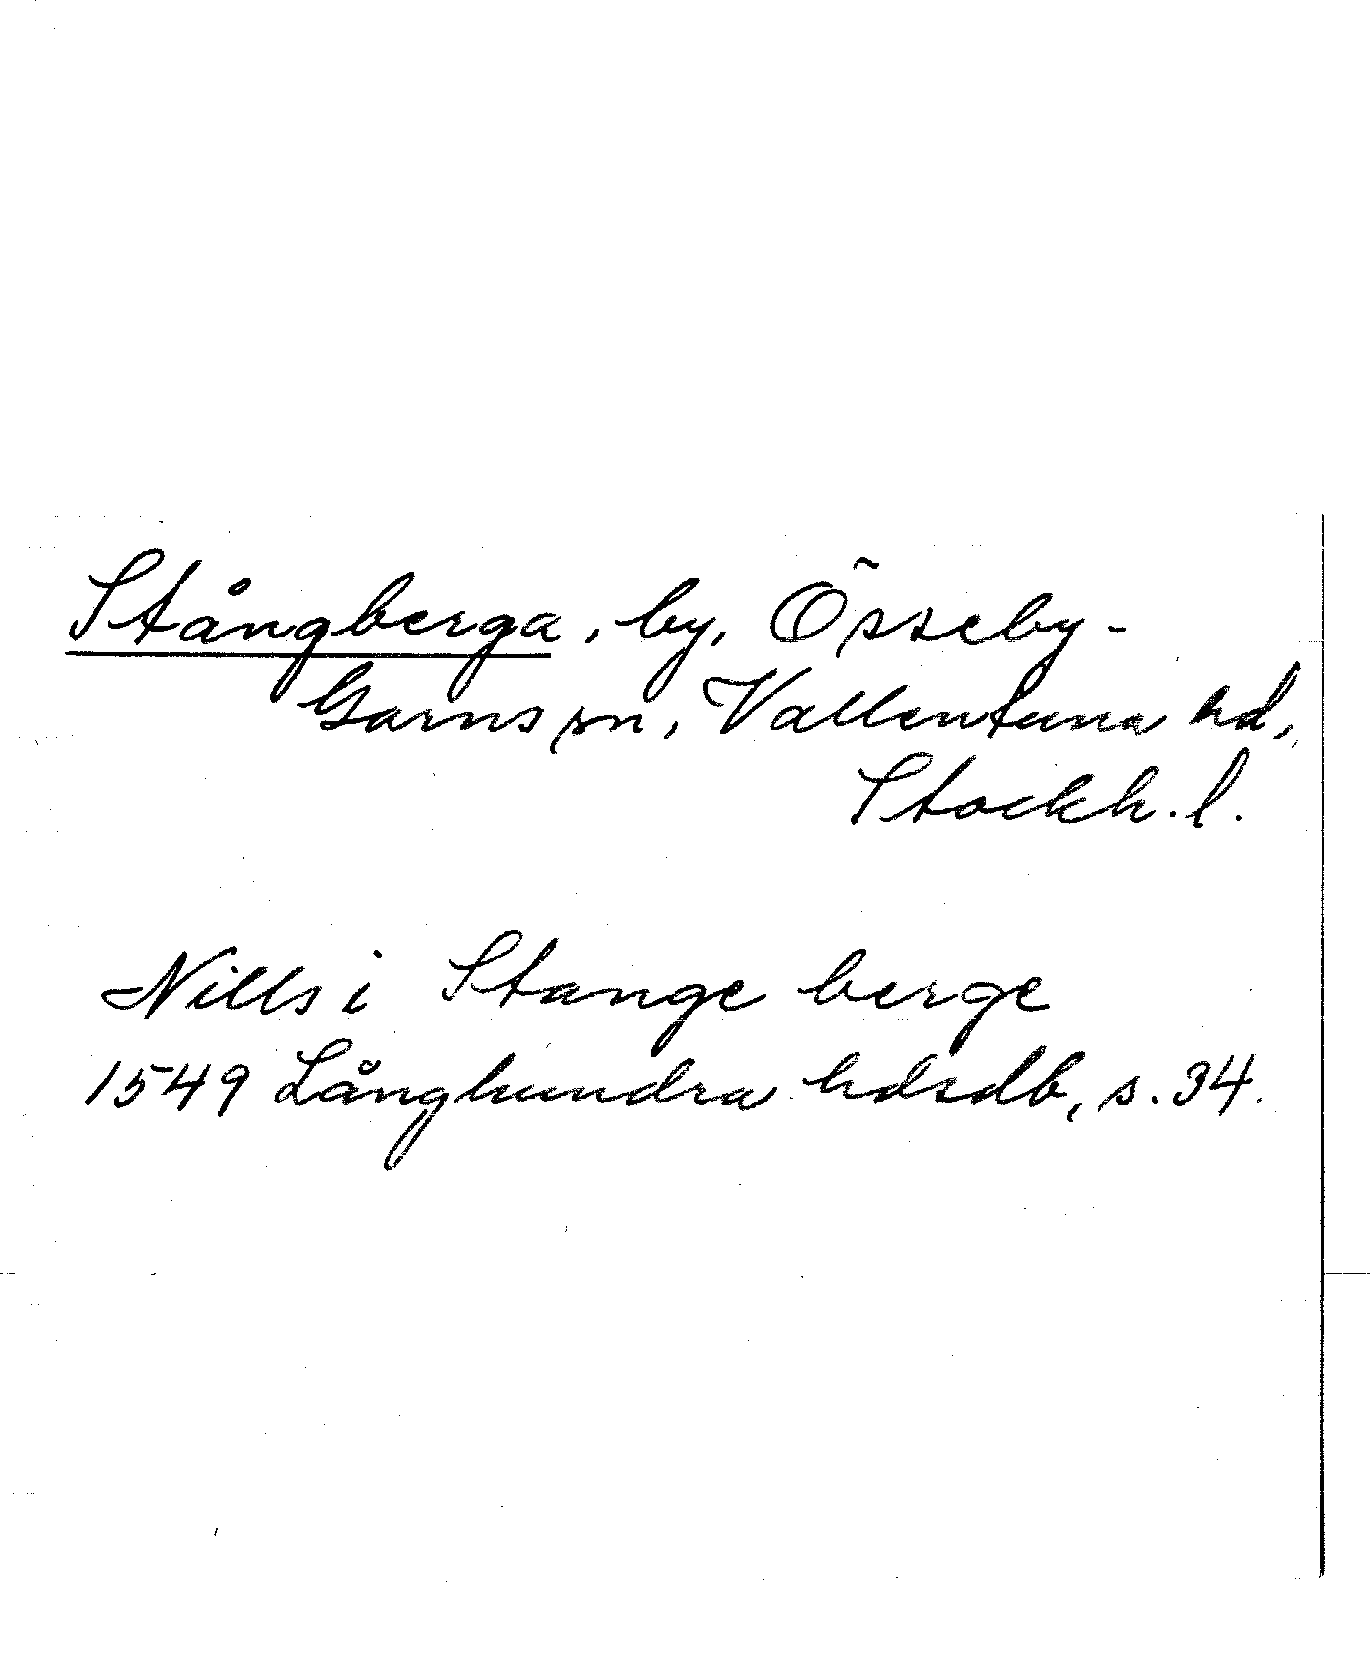 Stångberga, by, Össeby-
Garns sn, Vallentuna hd,
Stockh. l.
Nills i Stange berge
1549 Långhundra hdsdb, s. 34.